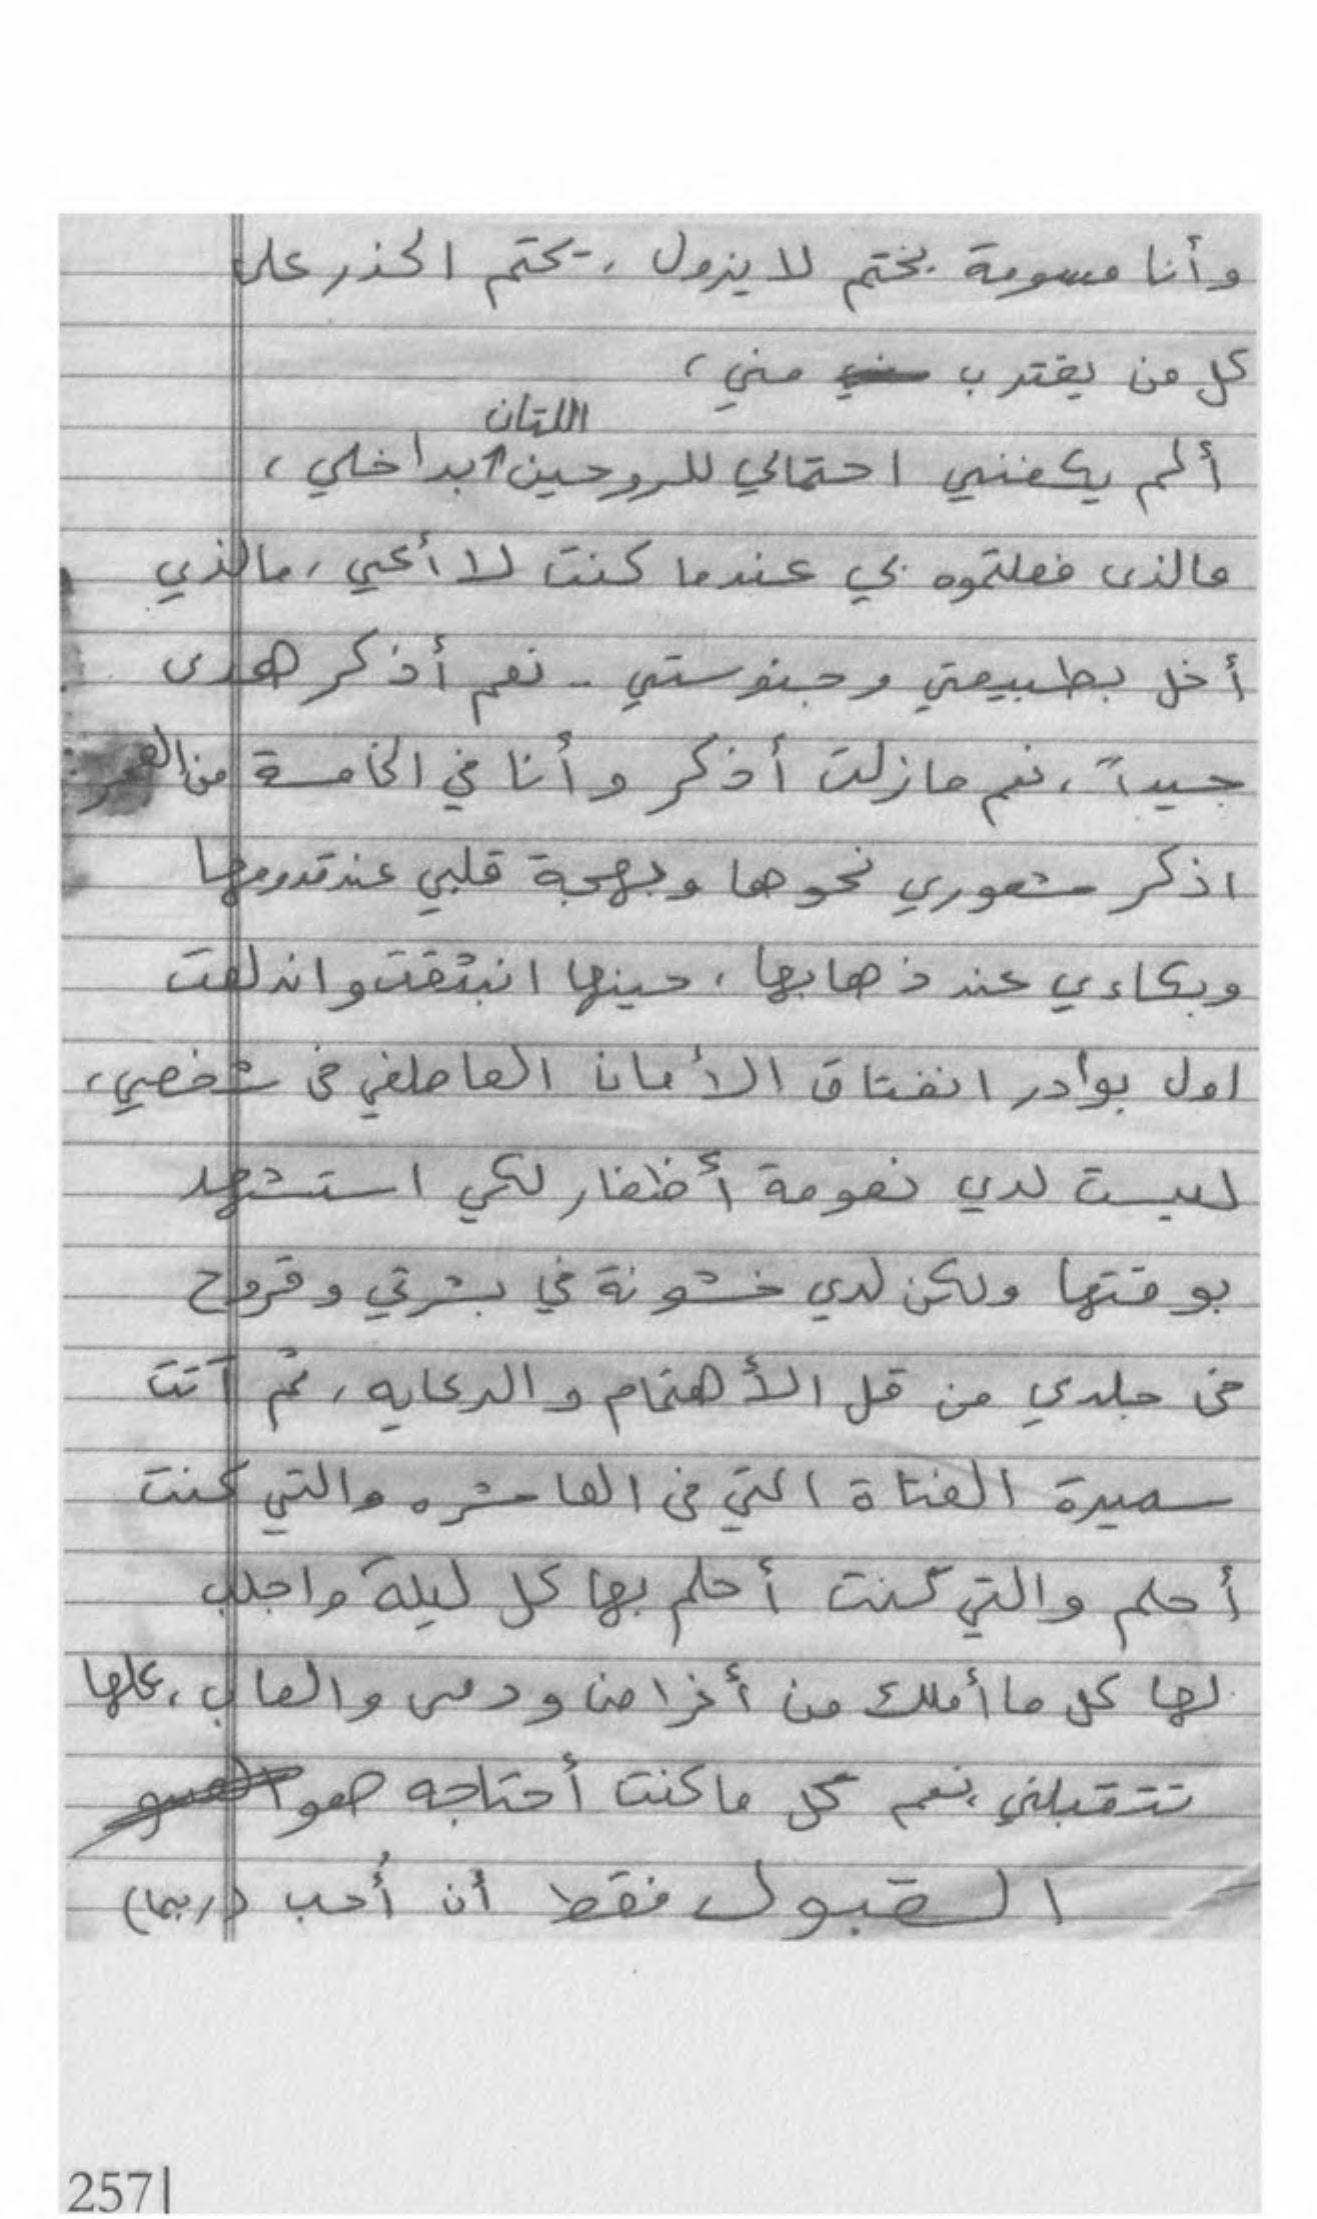 وأنا موسومة بختم لا يزول، يحتم الحذر على
كل من يقترب مني،
اللتان
ألم يكفنني احتمالي للروحين بداخلي،
مالذى فعلتموه بي عندما كنت لا أعي، مالذي
أخل بطبيعتي وجنوستي .. نعم أذكر هدى
جيداً، نعم مازلت أذكر وأنا في الخامسة من العمر
اذكر شعوري نحوها وبهجة قلبي عند قدومها
وبكاءي عند ذهابها، حينها انبثقت واندلقت
اول بوادر انفتاق الأمان العاطفي فى شخصي،
ليست لدي نعومة أظفار لكي استشهد
بوقتها ولكن لدي خشونة في بشرتي وقروح
فى جلدي من قل الأهتمام والرعايه، ثم أتت
سميرة الفتاة التي فى العاشره والتي كنت
أحلم والتي كنت أحلم بها كل ليلة واجلب
لها كل ما أملك من أغراض ودمى والعاب، علها
تتقبلني، نعم كل ما كنت أحتاجه هو
القبول فقط أن أُحب (ربما)
257|